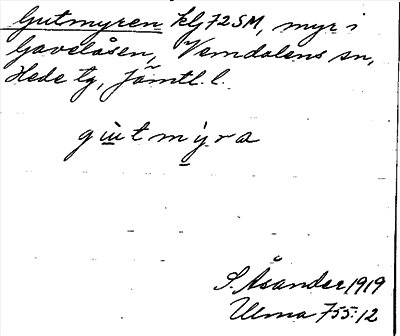 Gutmyren klj 72SM, myr i
Gavelåsen, Vemdalens sn,
Hede tg, Jämtl. l.
gùtmy̍ra
S. Åsander 1919
Ulma 755:12